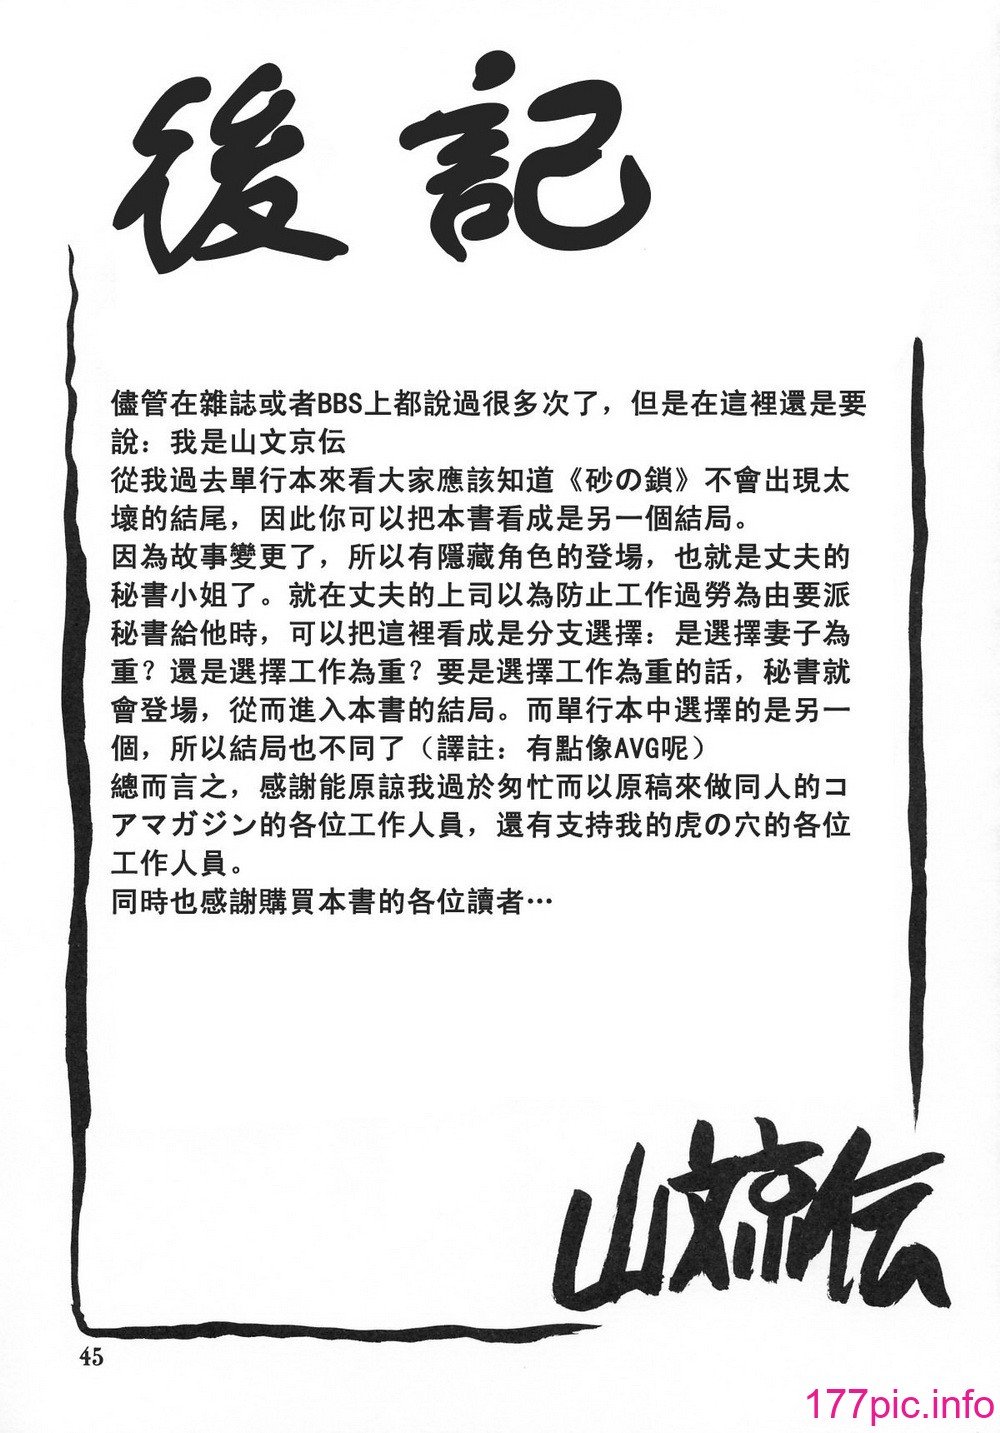 後記
儘管在雜誌或者BBS上都說過很多次了，但是在這裡還是要
說：我是山文京伝
從我過去單行本來看大家應該知道《砂の鎖》不會出現太
壞的結尾，因此你可以把本書看成是另一個結局。
因為故事變更了，所以有隱藏角色的登場，也就是丈夫的
秘書小姐了。就在丈夫的上司以為防止工作過勞為由要派
秘書給他時，可以把這裡看成是分支選擇：是選擇妻子為
重？還是選擇工作為重？要是選擇工作為重的話，秘書就
會登場，從而進入本書的結局。而單行本中選擇的是另一
個，所以結局也不同了（譯註：有點像AVG呢）
總而言之，感謝能原諒我過於匆忙而以原稿來做同人的コ
アマガジン的各位工作人員，還有支持我的虎の穴的各位
工作人員。
同時也感謝購買本書的各位讀者…
山文京伝
45
177pic.info